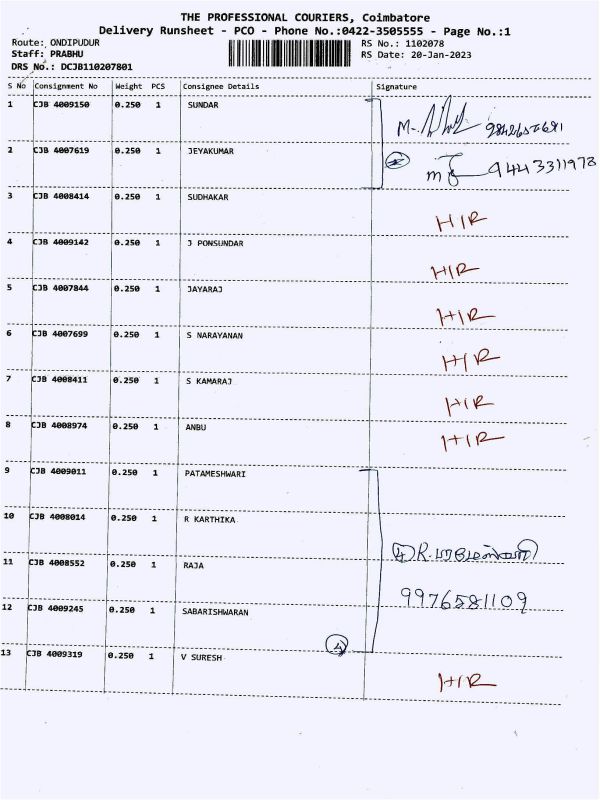 THE PROFESSIONAL COURIERS, Coimbatore
Delivery Runsheet - PCO - Phone No.:0422-3505555 - Page No.:1
Route: ONDIPUDUR RS No.: 1102078
Staff: PRABHU RS Date: 20-Jan-2023
DRS No.: DCJB110207801
S No Consignment No Weight PCS Consignee Details Signature
1 CJB 4009150 0.250 1 SUNDAR
2 CJB 4007619 0.250 1 JEYAKUMAR 9443311978
3 CJB 4008414 0.250 1 SUDHAKAR H/R
4 CJB 4009142 0.250 1 J PONSUNDAR H/R
5 CJB 4007844 0.250 1 JAYARAJ H/R
6 CJB 4007699 0.250 1 S NARAYANAN H/R
7 CJB 4008411 0.250 1 S KAMARAJ H/R
8 CJB 4008974 0.250 1 ANBU H/R
9 CJB 4009011 0.250 1 PATAMESHWARI
10 CJB 4008014 0.250 1 R KARTHIKA
11 CJB 4008552 0.250 1 RAJA 4 R.
12 CJB 4009245 0.250 1 SABARISHWARAN 9976581109
4
13 CJB 4009319 0.250 1 V SURESH H/R